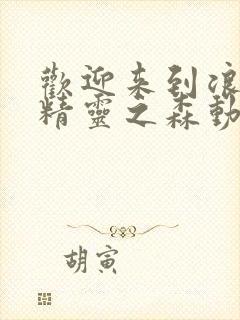 歡迎来到浪
精靈之森動
胡寅